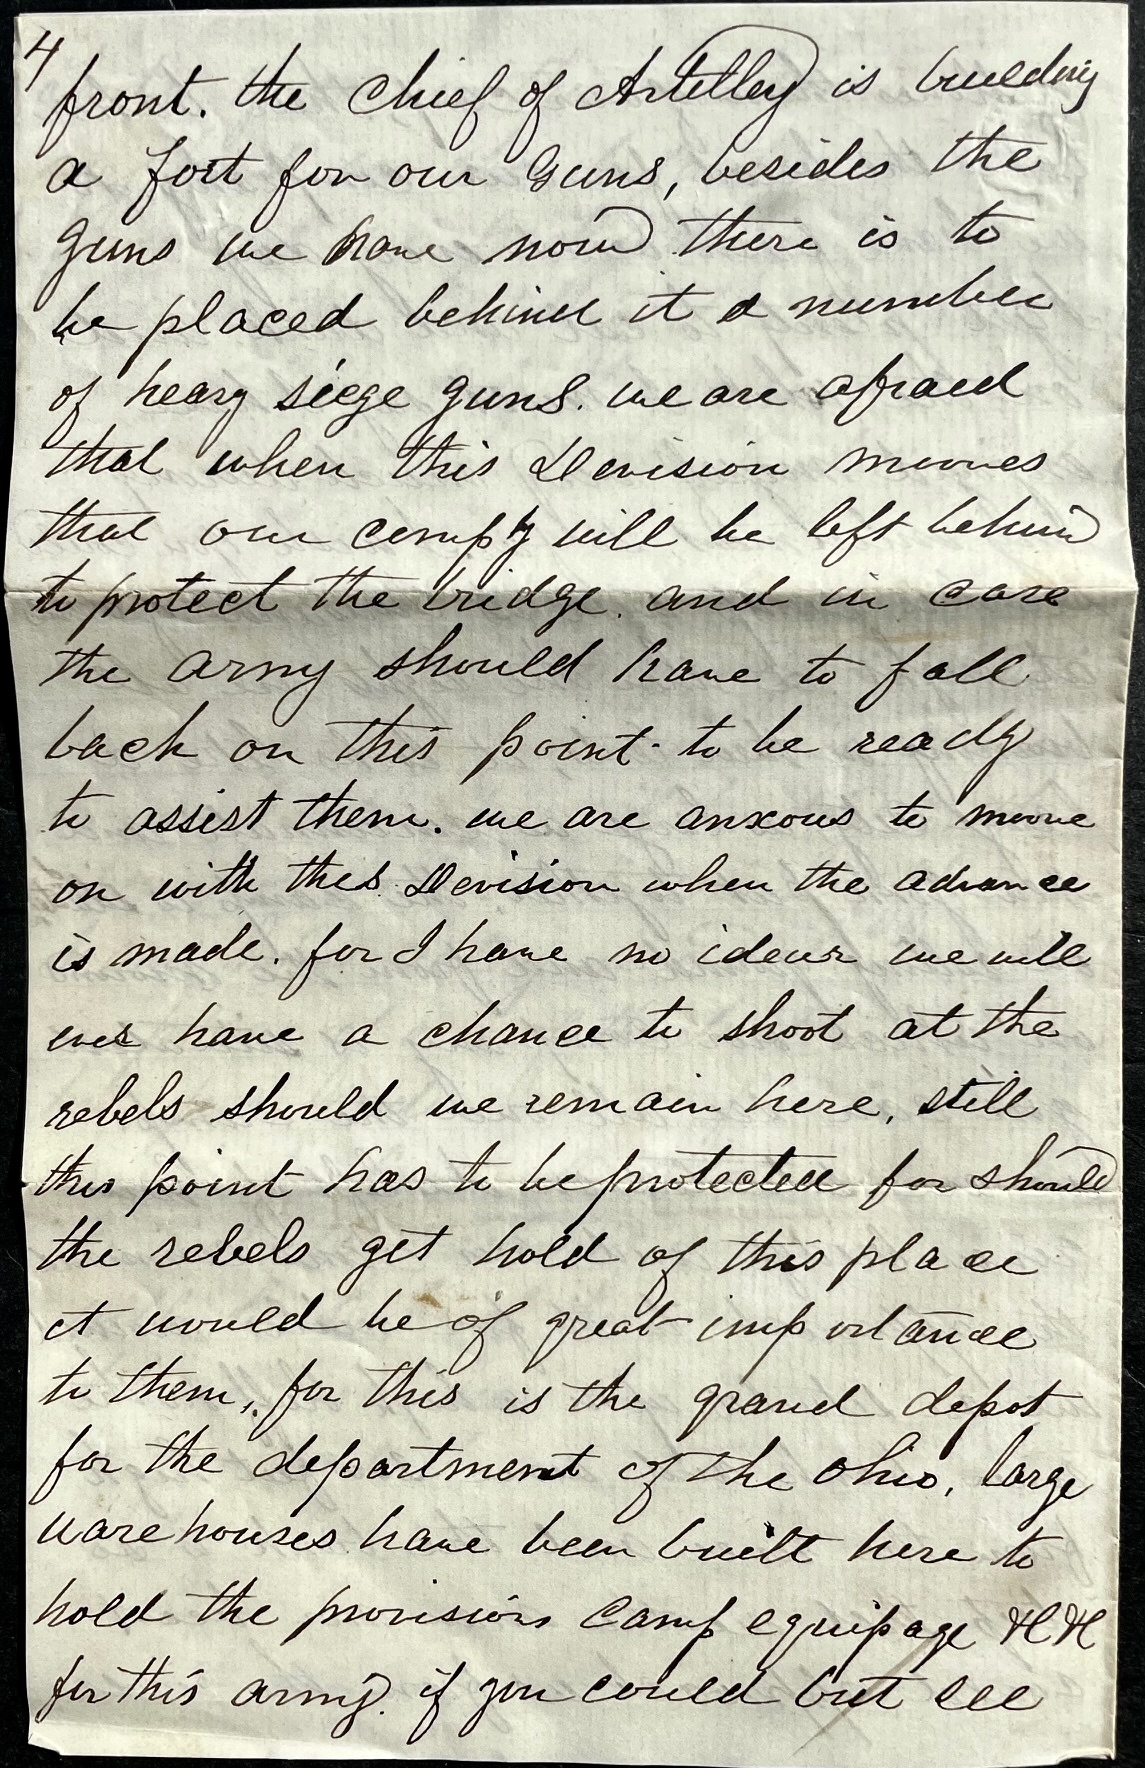 4
front. the Chief of Artilley is building
a fort for our guns, besides the
guns we have now there is to
be placed behind it a number
of heavy siege guns. we are afraid
that when this Devision mooves
that our compy will be left behind
to protect the bridge. and in case
the army should have to fall
back on this point. to be ready
to assist them. we are anxous to moove
on with this Devision when the advance
is made. for I have no idear we will
ever have a chance to shoot at the
rebels should we remain here, still
this point has to be protected for should
the rebels get hold of this place
it would be of great importance
to them, for this is the grand depot
for the department of the Ohio, large
warehouses have been built here to
hold the provisions camp equipage &c &c
for this army. if you could but see